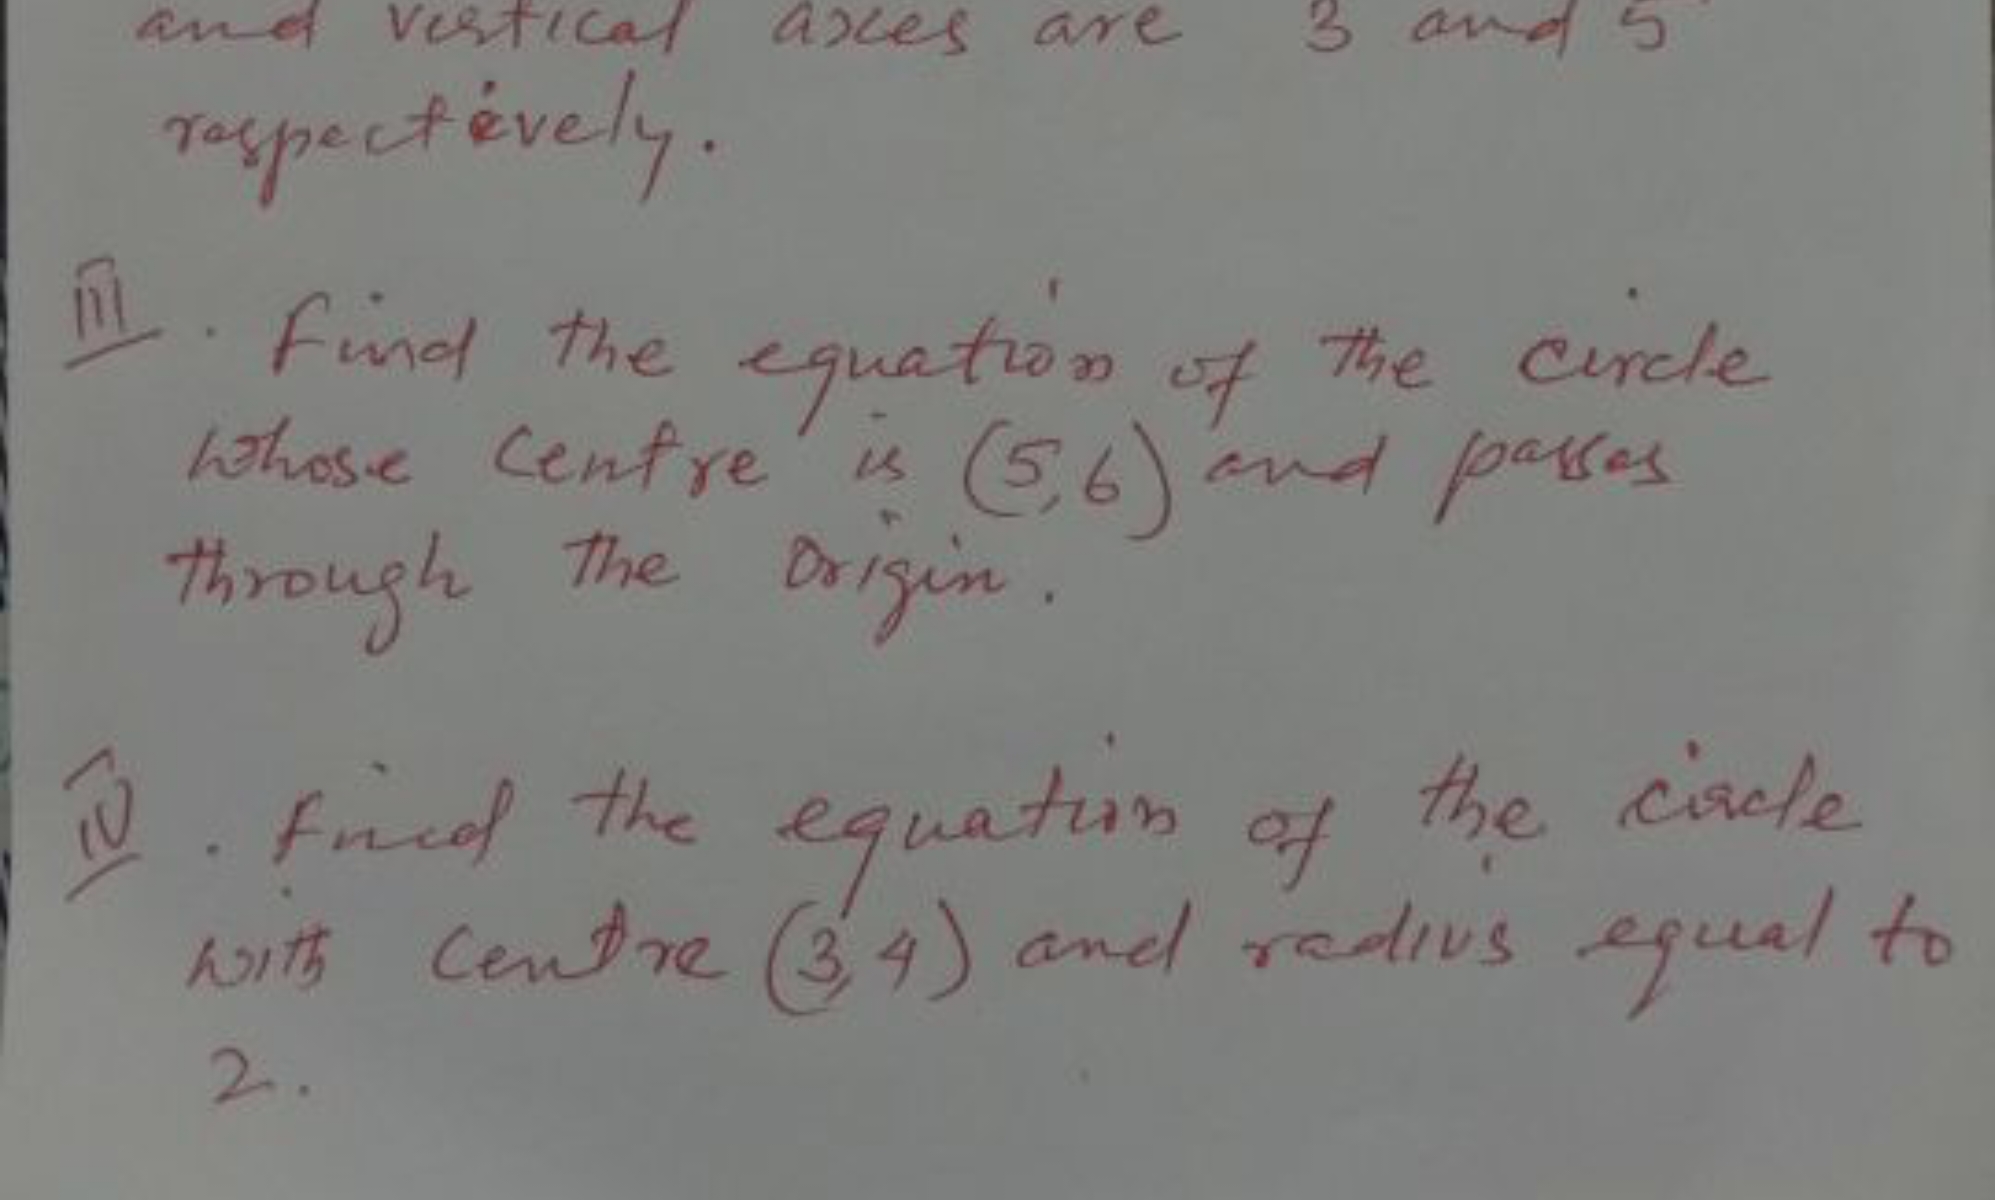 and vertical axes are 3 and 5
respectively.
III. Find the equation of the circle
whose centre is (5,6) and passes
through the origin.
IV. Find the equation of the circle
with centre (3,4) and radius equal to
2.